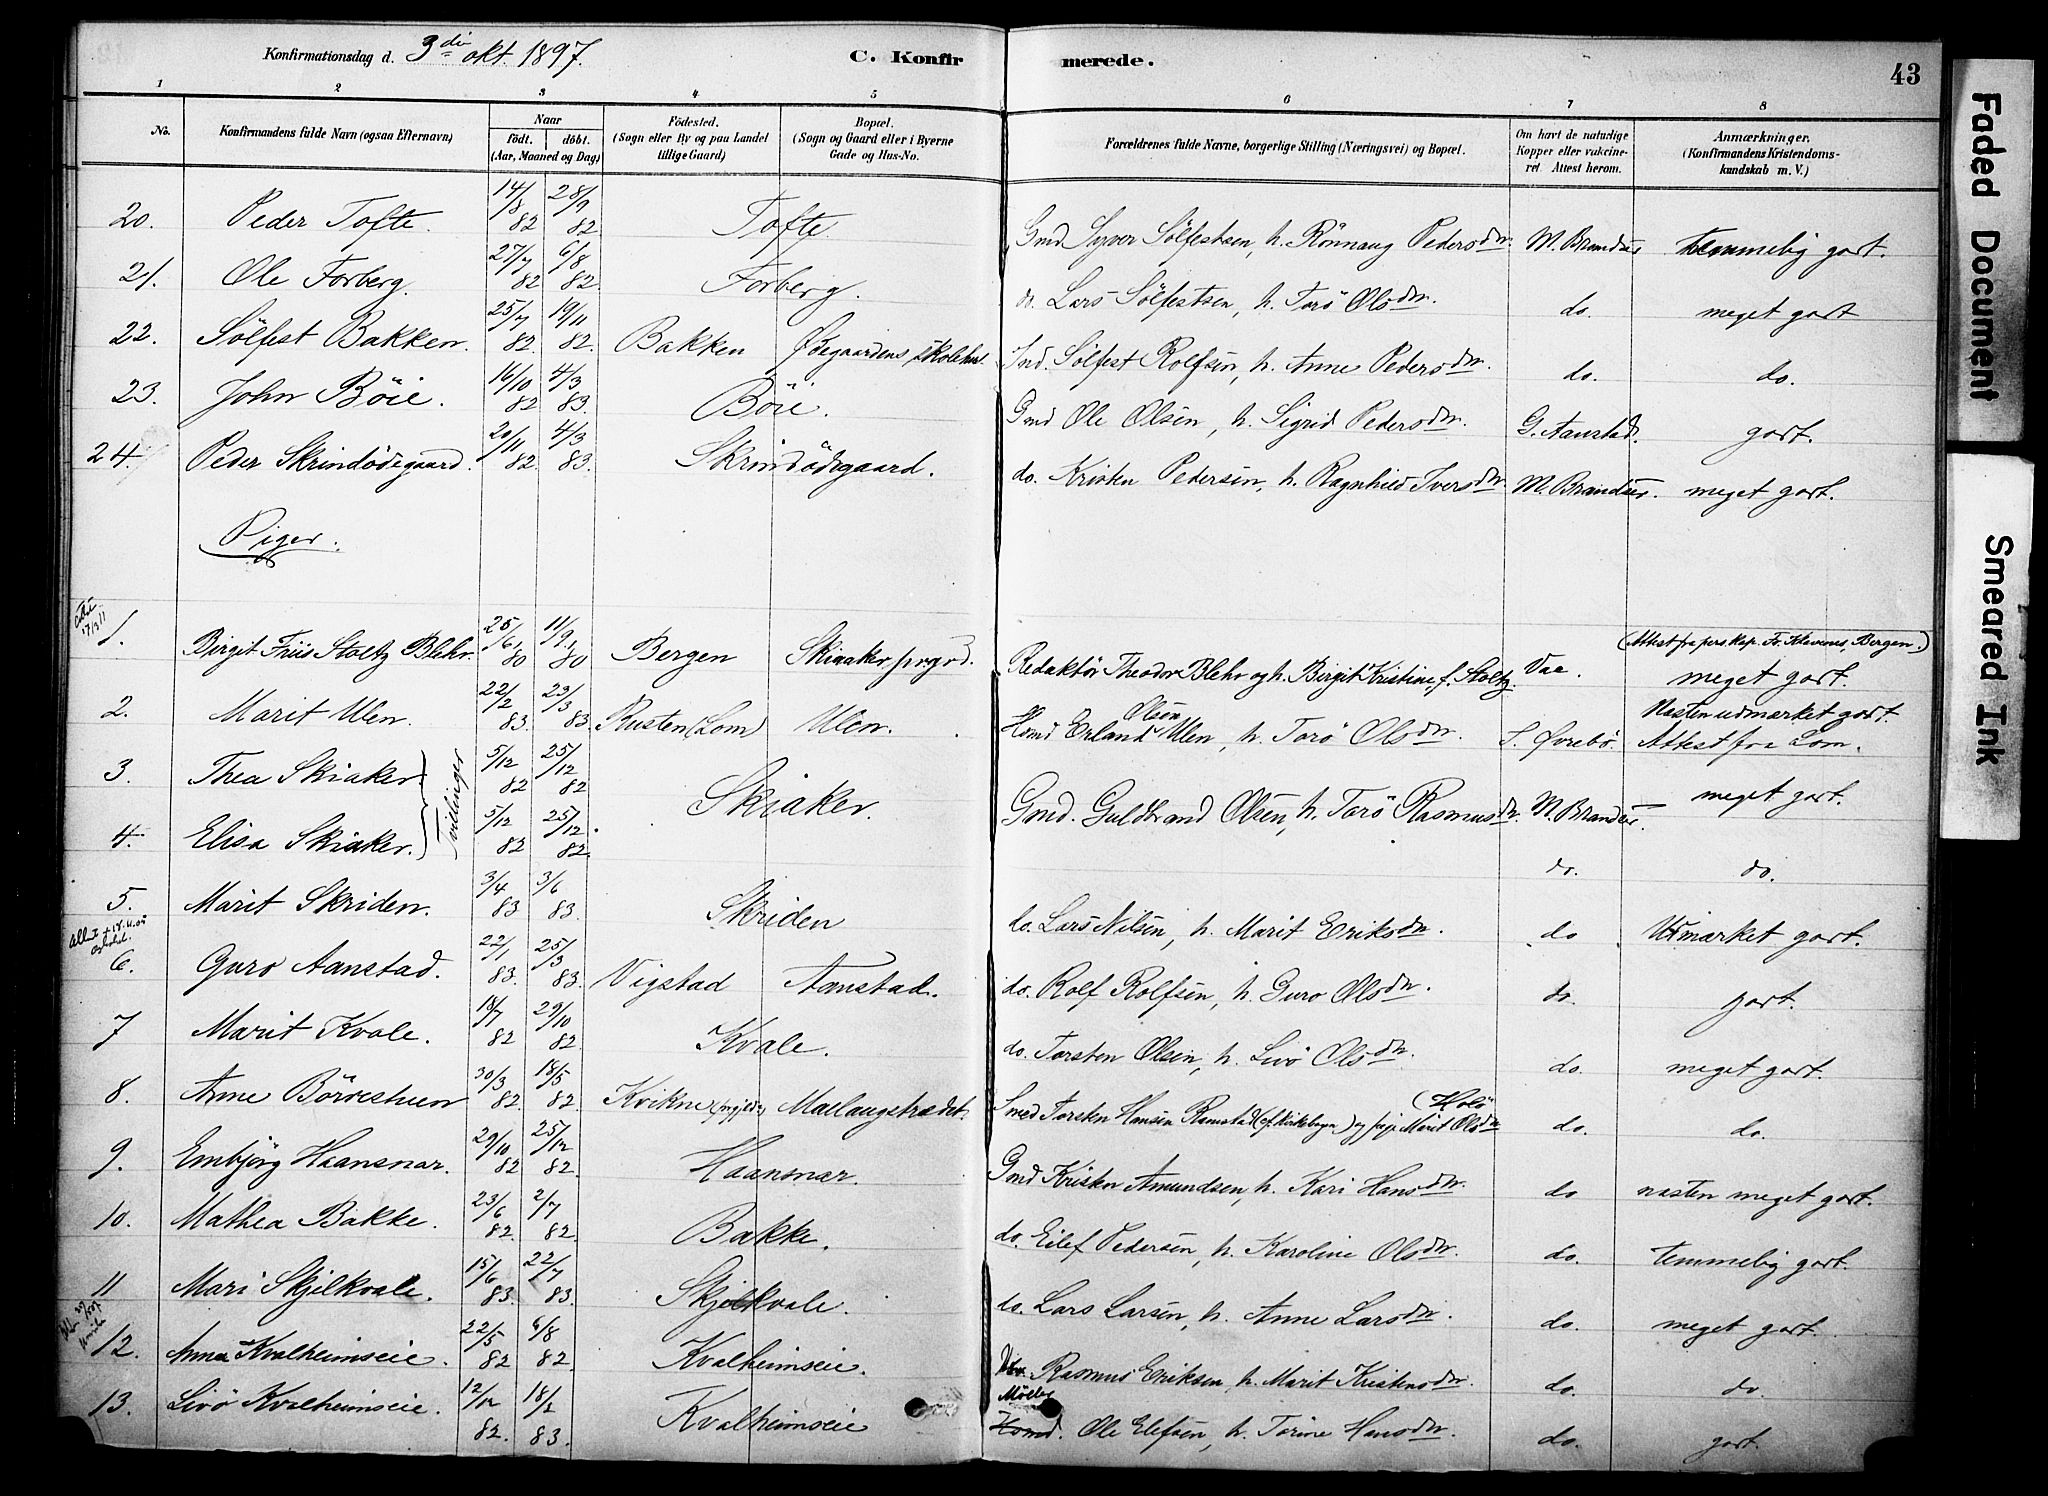 Konfirmationsdag d. 3die okt. 1897.
C. Konfirmerede.
43
1 2 3 4 5 6 7 8
No. Konfirmandens fulde Navn (ogsaa Efternavn) Naar födt. döbt. (Aar, Maaned og Dag) Födested. (Sogn eller By og paa Landet tillige Gaard) Bopæl. (Sogn og Gaard eller i Byerne Gade og Hus-No. Forældrenes fulde Navne, borgerlige Stilling (Næringsvei) og Bopæl. Om havt de naturlige Kopper eller vakcineret. Attest herom. Anmærkninger. (Konfirmandens Kristendomskundskab m. V.)
20. Peder Tofte. 14/8 82 28/9 82 Tofte. Gmd Syver Sölfestsen, h. Rönnaug Pedersdtr. M. Brandser temmelig godt.
21. Ole Forberg. 27/7 82 6/8 82 Forberg. do. Lars Sölfestsen, h. Torö Olsdtr. do. meget godt
22. Sölfest Bakken. 25/7 82 19/11 82. Bakken Ødegaardens skolehus. Ind. Sölfest Rolfsen, h. Anne Pedersdtr. do. do.
23. John Böie. 16/10 82 4/3 83. Böie. Gmd Ole Olsen, h. Sigrid Pedersdtr. G. Aanstad. godt.
24. Peder Skrindödegaard. 20/11 82. 4/3 83. Skrindödegaard. do. Kristen Pedersen, h. Ragnhild Iversdtr. M. Brandser. meget godt.
Piger.
1. Birgit Friis Stoltz Blehr. 25/6 80 11/9 80 Bergen Skiaker prgrd. Redaktör Theodor Blehr og h. Birgit Kristine, f. Stoltz. Vac. (Attest fra pers. kap. Fr. Klaveness, Bergen.) meget godt.
2. Marit Ulen. 22/2 83. 23/3 83. Rusten (Lom) Ulen. Hmd Erland Olsen Ulen, h. Torö Olsdtr. S. Övrebö. Næsten udmærket godt. Attest fra Lom.
3. Thea Skiaker. Tvillinger 5/12 82 25/12 82 Skiaker. Gmd. Guldbrand Olsen, h. Torö Rasmusdtr. M. Brandser. meget godt.
4. Elisa Skiaker. 5/12 82 25/12 82. do. do.
5. Marit Skriden. 3/4 83 3/6 83. Skriden do. Lars Nilsen, h. Marit Eriksdtr. do Udmærket godt.
6. Guro Aanstad. 22/1 83. 25/3 83. Vigstad Aanstad. do. Rolf Rolfsen, h. Guro Olsdtr. do. godt.
7 Marit Kvale. 18/7 82 29/10 82. Kvale. do. Torsten Olsen, h. Livö Olsdtr. do. meget godt.
8. Anne Börrestuen 30/3 82. 18/5 82. Kvikne (prgjeld) Maelaugstrædet. Smed Torsten Hansen Ramstad (af Kirkebogen) og pige Marit Olsdtr (Holö do. do.
9. Embjörg Haansnar. 29/10 82 25/12 82. Haansnar. Gmd Kristen Amundsen, h. Kari Hansdtr. do næsten meget godt.
10. Mathea Bakke. 23/6 82. 2/7 82. Bakke. do. Eilef Pedersen, h. Karoline Olsdtr. do. temmelig godt.
11 Mari Skjelkvale. 15/6 83. 22/7 83. Skjelkvale. do. Lars Larsen, h. Anne Larsdtr. do. meget godt.
12. Anna Kvalheimseie. 22/5 82 6/8 82. Kvalheimseie. Rasmus Eriksen, h. Marit Kristensdtr. do. do.
13. Livö Kvalheimseie. 12/12 82. 18/2 83. Kvalheimseie Hsmd. Ole Elefsen, h. Torine Hansdtr. do. godt.
Faded Document
Smeared Ink